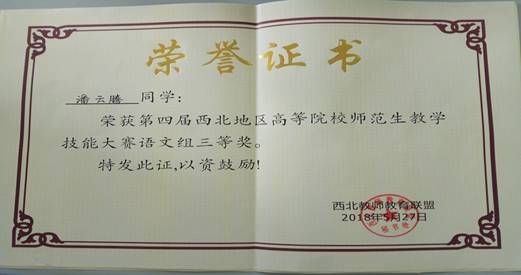 荣誉证书
潘云腾 同学:
荣获第四届西北地区高等院校师范生教学
技能大赛语文组三等奖。
特发此证,以资鼓励!
西北教师教育联盟
2018年5月27日
秘书处